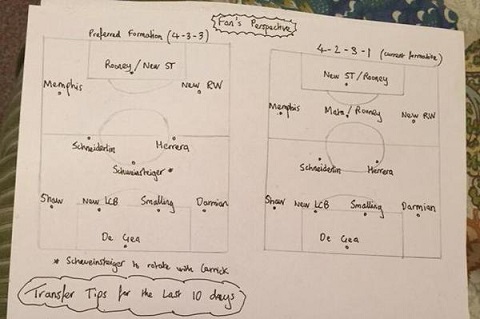 Fan's Perspective
Preferred Formation (4-3-3)
Rooney/New ST
Memphis
New RW
Schneiderlin
Herrera
Schweinsteiger *
Shaw
New LCB
Smalling
Darmian
De Gea
* Schweinsteiger to rotate with Carrick
4-2-3-1 (current formation)
New ST/Rooney
Memphis
Mata/Rooney
New RW
Schneiderlin
Herrera
Shaw
New LCB
Smalling
Darmian
De Gea
Transfer Tips for the Last 10 days